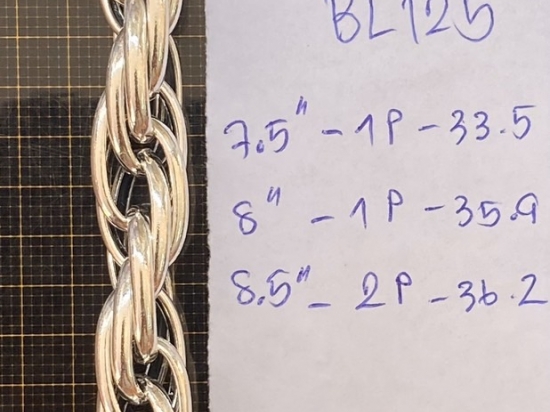 BL125
7.5" - 1P - 33.5
8" - 1P - 35.9
8.5" - 2P - 36.2